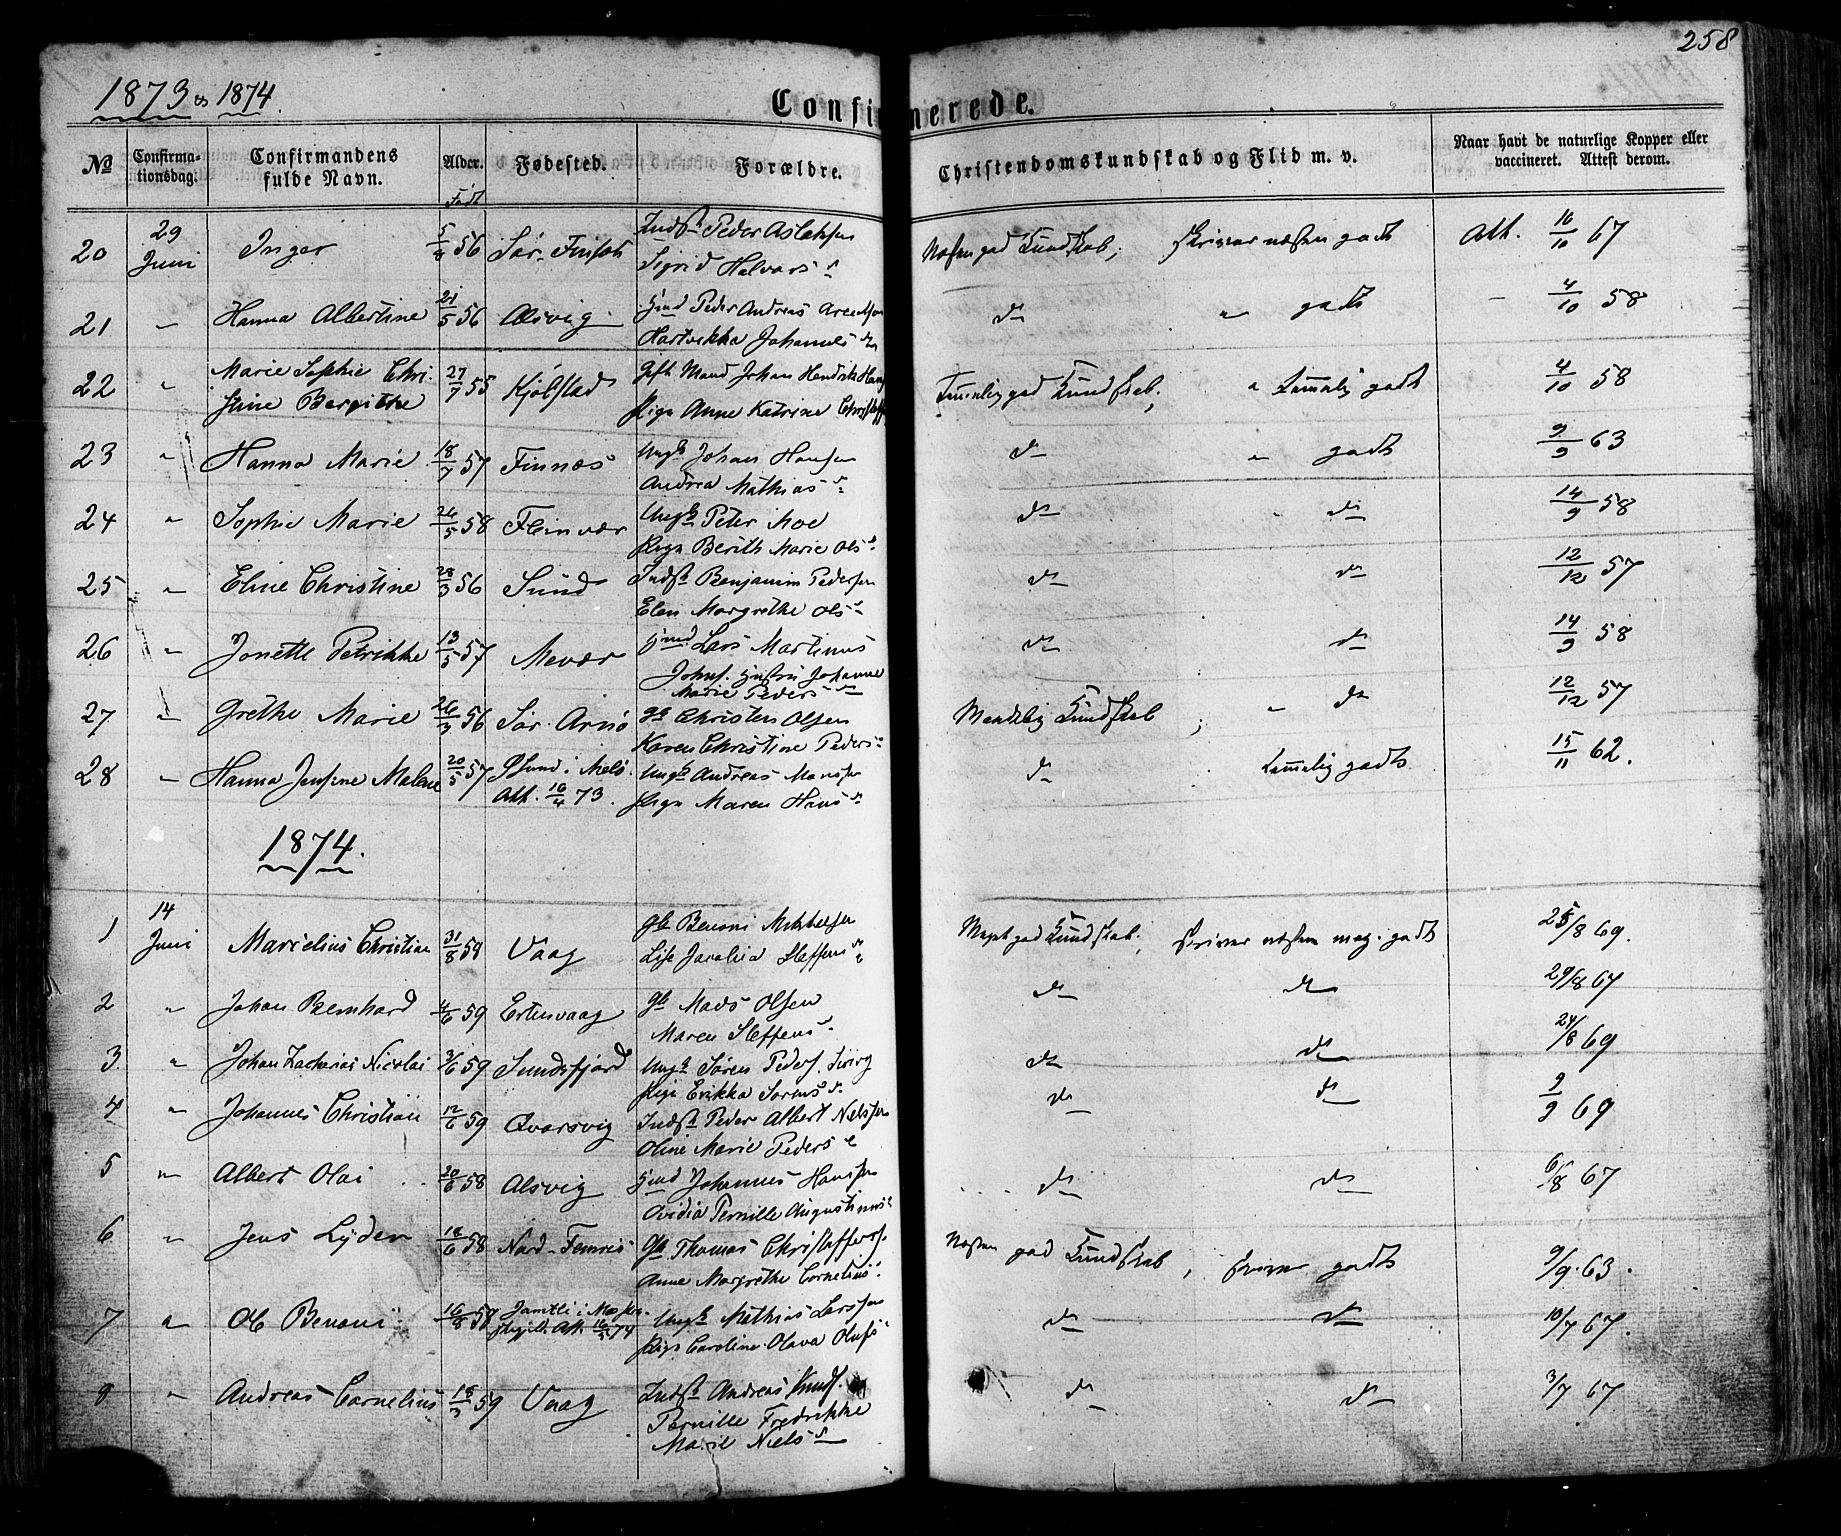 258
1873 & 1874.
Confirmerede.
No
Confirma-
tionsdag.
Confirmandens
fulde Navn.
Alder.
Fødested.
Forældre.
Christendomskundskab og Flid m. v.
Naar havt de naturlige Kopper eller
vaccineret. Attest derom.
Født
20 29 Juni Inger 56 Indst Peder Aslaksen
Sigrid Halvors d. Næsten god Kundskab, skriver næsten godt Att. 10/10 67
21 " Hanna Albertine 21/5 56 Alsvig Gmd Peder Andreas Arentsen
Hartvikka Johannes d. do " godt 4/10 58
22 " Marie Sophie Chri-
stine Bergithe 27/7 55 Kjølstad Gift Mand Johan Hendrik Hans
Pige Anne Katrine Christoff Temmelig god Kundskab, " temmelig godt 4/10 58
23 " Hanna Marie 18/7 57 Finnæs Ungk Johan Hansen
Andrea Mathias d. do " godt 9/9 63
24 " Sophie Marie 26/5 58 Fleinvær Ungk Peter Moe
Pige Berith Marie Ols d. do " do 14/9 58
25 " Eline Christine 28/3 56 Sund Indst Benjamin Pedersen
Elen Margrethe Ols d. do do 12/12 57
26 " Jonette Petrikke 13/5 57 Mevær Gmd Lars Martinus
Johns. Hustru Johanne
Marie Peders d. do do 14/9 58
27 " Grethe Marie 26/3 56 Sør-Arnø Gb Christen Olsen
Karen Christine Peders d. Maadelig Kundskab, " do 12/12 57
28 " Hanna Jensine Malene 20/5 57 Att. 16/4 73. Ungk Andreas
Pige Maren Hans d. do temmelig godt 15/11 62.
1874.
1 14 Juni Marselius Christian 31/8 59 Vaag Gb Benoni Mikkelsen
Lise Jacobia Steffens d. Meget god Kundskab, skriver næsten meg. godt 25/8 69.
2 " Johan Bernhard 4/6 59 Ertenvaag Gb Mads Olsen
Maren Steffens d. do do 29/8 67
3. " Johan Zacharias Nicolai 3/6 59 Sundsfjord Ungk Søren Peders.
Pige Erikka Sørens d. do do 24/8 69
4 " Johannes Christian 12/6 59 Qvarsvig Indst Peder Albert Nielsen
Oline Marie Peders d. do do 9/9 69
5 " Albert Olai 20/6 58 Alsvig Gmd Johannes Hansen
Ovidia Pernille Augustinus d. do do 6/8 67
6 " Jens Lyder 18/6 58 Nord-Femris Gb Thomas Christoffers.
Anne Margrethe Cornelius d. Næsten god Kundskab, skriver godt 9/9. 63.
7 " Ole Benoni 16/8 58 Att. 74 Ungk Mathias Larsen
Pige Caroline Olava Olufs d. do do 10/7 67.
8 " Andreas Cornelius 18/3 59 Vaag Indst Andreas Knuds.
Pernille Fredrikke
Marie Niels d. do do 3/7 67